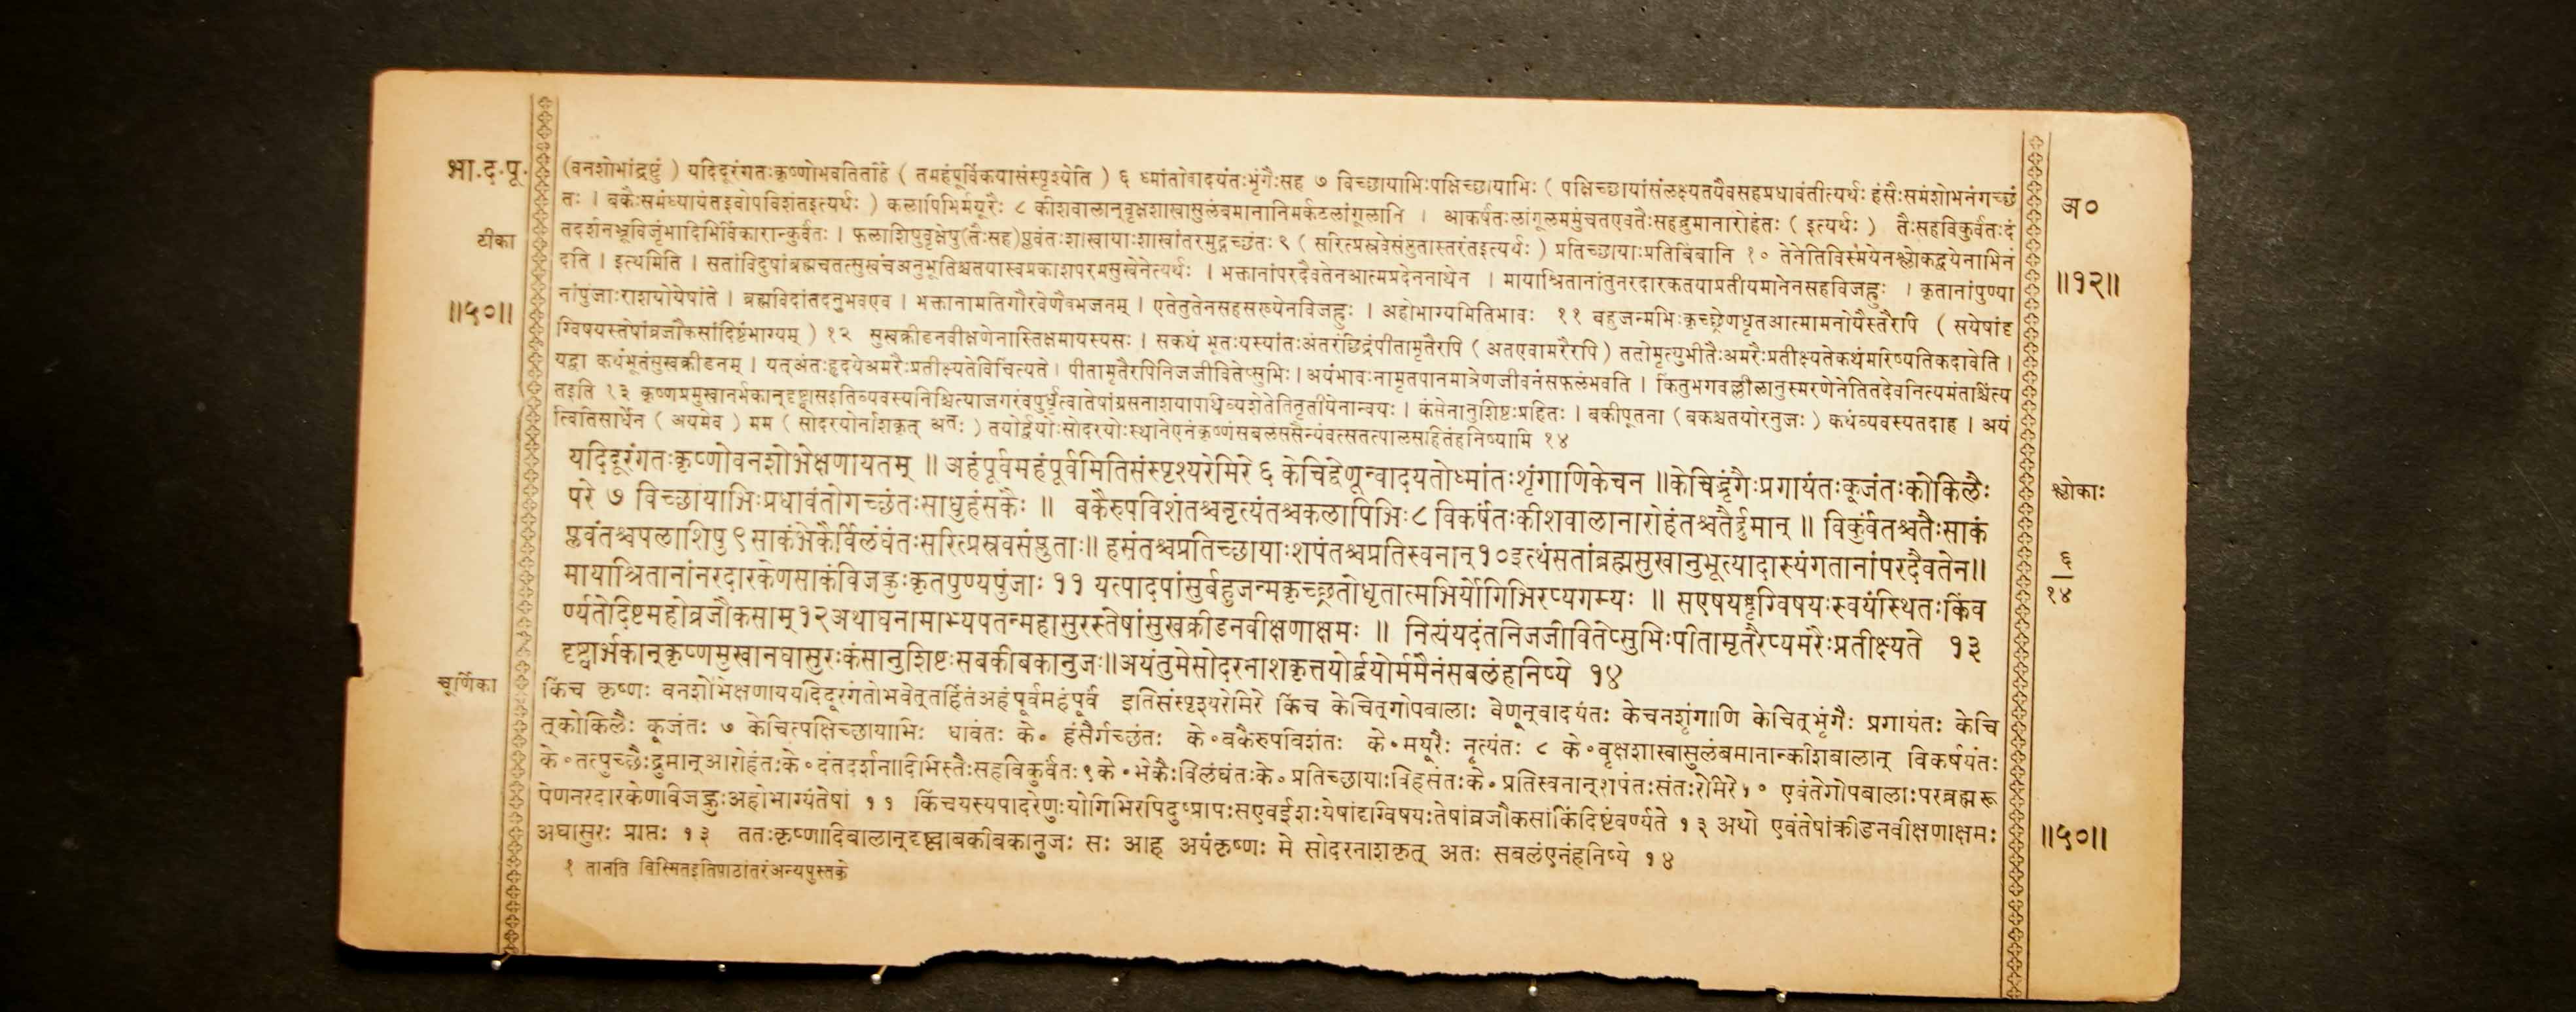 भा.द.पू. (वनशोभांद्रष्टुं ) यदिदूरंगतःकृष्णोभवतितर्हि ( तमहंपूर्विकयासंस्पृश्येति ) ६ ध्मांतोवादयंतःभृंगैःसह ७ विच्छायाभिःपक्षिच्छायाभिः ( पक्षिच्छायांसंलक्ष्यतयैवसहप्रधावंतीत्यर्थः हंसैःसमंशोभनंगच्छं
अ०
तः । बकैःसमंध्यायंतइवोपविशंतइत्यर्थः ) कलापिभिर्मयूरैः ८ कीशवालान्वृक्षशाखासुलंबमानानिमर्कटलांगूलानि । आकर्षंतःलांगूलममुंचतएवतैःसहद्रुमानारोहंतः ( इत्यर्थः ) तैःसहविकुर्वंतःदं
टीका तदर्शनभ्रूविजृंभादिभिर्विकारान्कुर्वंतः । पलाशिषुवृक्षेषु(तैःसह)प्लवंतःशाखायाःशाखांतरमुद्गच्छंतः ९ ( सरित्प्रस्रवेसंप्लुतास्तरंतइत्यर्थः ) प्रतिच्छायाःप्रतिबिंबानि १० तेनेतिविस्मयेनश्लोकद्वयेनाभिनं
दति । इत्थमिति । सतांविदुषांब्रह्मचतत्सुखंचअनुभूतिश्चतयास्वप्रकाशपरमसुखेनेत्यर्थः । भक्तानांपरदैवतेनआत्मप्रदेननाथेन । मायाश्रितानांतुनरदारकतयाप्रतीयमानेनसहविजह्रुः । कृतानांपुण्या
॥१२॥
॥५०॥ नांपुंजाःराशयोयेषांते । ब्रह्मविदांतदनुभवएव । भक्तानामतिगौरवेणैवभजनम् । एतेतुतेनसहसख्येनविजह्रुः । अहोभाग्यमितिभावः ११ बहुजन्मभिःकृच्छ्रेणधृतआत्मामनोयैस्तैरपि ( सयेषांदृ
ग्विषयस्तेषांव्रजौकसांदिष्टंभाग्यम् ) १२ सुखक्रीडनवीक्षणेनास्तिक्षमायस्यसः । सकथं भूतःयस्यांतःअंतरंछिद्रंपीतामृतैरपि ( अतएवामरैरपि ) ततोमृत्युभीतैःअमरैःप्रतीक्ष्यतेकथंमरिष्यतिकदावेति ।
यद्वा कथंभूतंसुखक्रीडनम् । यत्अंतःहृदयेअमरैःप्रतीक्ष्यतेविचिंत्यते । पीतामृतैरपिनिजजीवितेप्सुभिः । अयंभावःनामृतपानमात्रेणजीवनंसफलंभवति । किंतुभगवल्लीलानुस्मरणेनेतितदेवनित्यमंतश्चिंत्य
तइति १३ कृष्णप्रमुखानर्भकान्दृष्ट्वासइतिव्यवस्यनिश्चित्याजगरंवपुर्धृत्वातेषांग्रसनाशयापथिव्यशेतेतितृतीयेनान्वयः । कंसेनानुशिष्टःप्रहितः । बकीपूतना ( बकश्चतयोरनुजः ) कथंव्यवस्यतदाह । अयं
त्वितिसार्धेन ( अयमेव ) मम ( सोदरयोर्नाशकृत् अतः ) तयोर्द्वयोःसोदरयोःस्थानेएनंकृष्णंसबलंससैन्यंवत्सतत्पालसहितंहनिष्यामि १४
यदिदूरंगतःकृष्णोवनशोभेक्षणायतम् ॥ अहंपूर्वमहंपूर्वमितिसंस्पृश्यरेमिरे ६ केचिद्वेणून्वादयतोध्मांतःशृंगाणिकेचन ॥केचिद्भृंगैःप्रगायंतःकूजंतःकोकिलैः
श्लोकाः
परे ७ विच्छायाभिःप्रधावंतोगच्छंतःसाधुहंसकैः ॥ बकैरुपविशंतश्चनृत्यंतश्चकलापिभिः८ विकर्षंतःकीशवालानारोहंतश्चतैर्द्रुमान् ॥ विकुर्वंतश्चतैःसाकं
प्लवंतश्चपलाशिषु ९ साकंभेकैर्विलंघंतःसरित्प्रस्रवसंप्लुताः॥ हसंतश्चप्रतिच्छायाःशपंतश्चप्रतिस्वनान्१०इत्थंसतांब्रह्मसुखानुभूत्यादास्यंगतानांपरदैवतेन॥
६
१४
मायाश्रितानांनरदारकेणसाकंविजह्रुःकृतपुण्यपुंजाः ११ यत्पादपांसुर्बहुजन्मकृच्छ्रतोधृतात्मभिर्योगिभिरप्यगम्यः ॥ सएषयद्दृग्विषयःस्वयंस्थितःकिंव
र्ण्यतेदिष्टमहोव्रजौकसाम्१२अथाघनामाभ्यपतन्महासुरस्तेषांसुखक्रीडनवीक्षणाक्षमः ॥ नित्यंयदंतनिजजीवितेप्सुभिःपीतामृतैरप्यमरैःप्रतीक्ष्यते १३
दृष्ट्वार्भकान्कृष्णमुखानघासुरःकंसानुशिष्टःसबकीबकानुजः॥अयंतुमेसोदरनाशकृत्तयोर्द्वयोर्ममैनंसबलंहनिष्ये १४
चूर्णिका किंच कृष्णः वनशोभेक्षणाययदिदूरगतोभवेत्तर्हितंअहंपूर्वमहंपूर्व इतिसंस्पृश्यरेमिरे किंच केचित्गोपबालाः वेणून्वादयंतः केचनशृंगाणि केचित्भृंगैः प्रगायंतः केचि
त्कोकिलैः कूजंतः ७ केचित्पक्षिच्छायाभिः धावंतः के० हंसैर्गच्छंतः के०बकैरुपविशंतः के०मयूरैः नृत्यंतः ८ के०वृक्षशाखासुलंबमानान्कीशबालान् विकर्षयंतः
के०तत्पुच्छैःद्रुमान्आरोहंतःके०दंतदर्शनादिभिस्तैःसहविकुर्वंतः९के०भेकैःविलंघंतःके०प्रतिच्छायाःविहसंतःके०प्रतिस्वनान्शपंतःसंतःरेमिरे१० एवंतेगोपबालाःपरब्रह्मरू
पेणनरदारकेणविजह्रुःअहोभाग्यंतेषां ११ किंचयस्यपादरेणुःयोगिभिरपिदुष्प्रापःसएवईशःयेषांदृग्विषयःतेषांव्रजौकसांकिंदिष्टंवर्ण्यते १३ अथो एवंतेषांक्रीडनवीक्षणाक्षमः
॥५०॥
अघासुरः प्राप्तः १३ ततःकृष्णादिबालान्दृष्ट्वाबकीबकानुजः सः आह अयंकृष्णः मे सोदरनाशकृत् अतः सबलंएनंहनिष्ये १४
१ तानति विस्मितइतिपाठांतरंअन्यपुस्तके